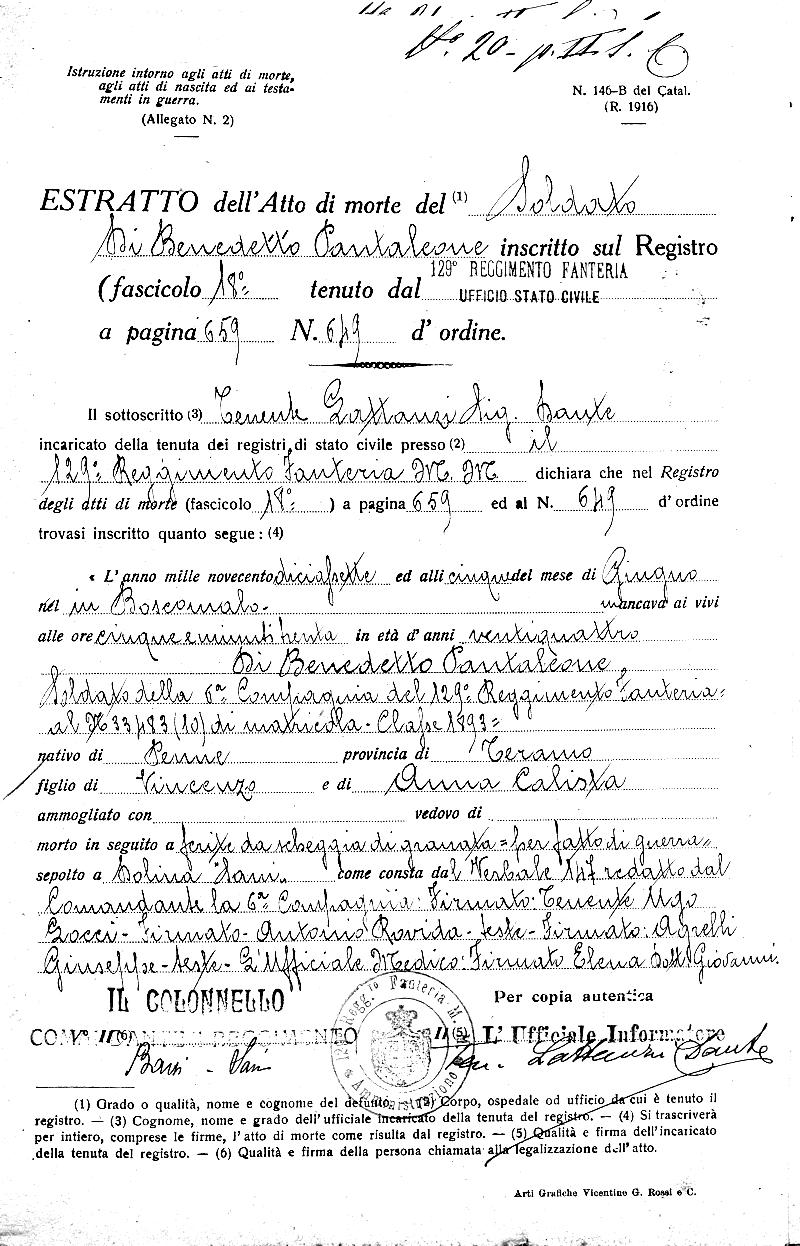 N° 20 - p. II S. C
Istruzione intorno agli atti di morte,
agli atti di nascita ed ai testa-
menti in guerra.
(Allegato N. 2)
N. 146-B del Catal.
(R. 1916)
ESTRATTO dell'Atto di morte del (1) Soldato
Di Benedetto Pantaleone inscritto sul Registro
(fascicolo 18° tenuto dal 129° REGGIMENTO FANTERIA
UFFICIO STATO CIVILE
a pagina 659 N. 649 d'ordine.
Il sottoscritto (3) Tenente Lattanzi Sig. Dante
incaricato della tenuta dei registri di stato civile presso (2) il
129° Reggimento Fanteria M. M. dichiara che nel Registro
degli atti di morte (fascicolo 18° ) a pagina 659 ed al N. 649 d'ordine
trovasi inscritto quanto segue: (4)
« L'anno mille novecento diciassette ed alli cinque del mese di Giugno
nel in Boscomalo - mancava ai vivi
alle ore cinque e minuti trenta in età d'anni ventiquattro
Di Benedetto Pantaleone,
Soldato della 6a Compagnia del 129° Reggimento Fanteria =
al N 33483 (10) di matricola - Classe 1893 =
nativo di Penne provincia di Teramo
figlio di Vincenzo e di Anna Calista
ammogliato con vedovo di
morto in seguito a ferite da scheggia di granata = per fatto di guerra =
sepolto a Dolina come consta dal Verbale 147 redatto dal
Comandante la 6a Compagnia: Firmato: Tenente Ugo
Bocci - Firmato - Antonio Rovida - teste - Firmato: Agrelli
Giuseppe - teste - L'Ufficiale Medico: Firmato Elena Dott. Giovanni.
IL COLONNELLO
Per copia autentica
COMANDANTE IL REGGIMENTO
(5) L'Ufficiale Informatore
Ten. Lattanzi Dante
(1) Grado o qualità, nome e cognome del defunto. — (2) Corpo, ospedale od ufficio da cui è tenuto il
registro. — (3) Cognome, nome e grado dell'ufficiale incaricato della tenuta del registro. — (4) Si trascriverà
per intiero, comprese le firme, l'atto di morte come risulta dal registro. — (5) Qualità e firma dell'incaricato
della tenuta del registro. — (6) Qualità e firma della persona chiamata alla legalizzazione dell'atto.
Arti Grafiche Vicentine G. Rossi e C.